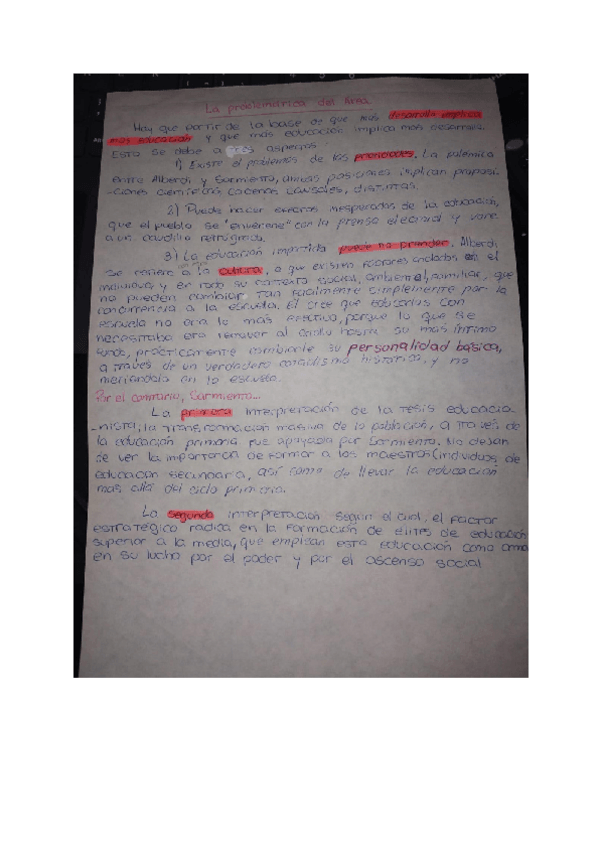 La problemática del Área
Hay que partir de la base de que más desarrollo implica
más educación y que más educación implica más desarrollo.
Esto se debe a tres aspectos
1) Existe el problemas de las prioridades. La polémica
entre Alberdi y Sarmiento, ambas posiciones implican proposi-
-ciones científicas cadenas causales, distintas.
2) Puede haber efectos inesperados de la educación,
que el pueblo se "envenene" con la prensa electoral y vote
a un caudillo retrógrada.
3) La educación impartida puede no prender. Alberdi
se refiere a la cultura, a que existen factores anclados en el
individuo y en todo su contexto social, ambiental, familiar, que
no pueden cambiar tan facilmente simplemente por la
concurrencia a la escuela. Él cree que educarlos con
escuela no era lo más efectivo, porque lo que se
necesitaba era remover al criollo hasta su más íntimo
fondo, prácticamente cambiarle su personalidad básica,
a través de un verdadero cataclismo histórico, y no
metiéndolo en la escuela.
Por el contrario, Sarmiento...
La primera interpretación de la tesis educacio-
-nista, la transformación masiva de la población, a través de
la educación primaria fue apoyada por Sarmiento. No dejan
de ver la importancia de formar a los maestros (individuos de
educación secundaria, así como de llevar la educación
más allá del ciclo primario.
La segunda interpretación según el cual, el factor
estratégico radica en la formación de élites de educación
superior a la media, que emplean esta educación como arma
en su lucha por el poder y por el ascenso social